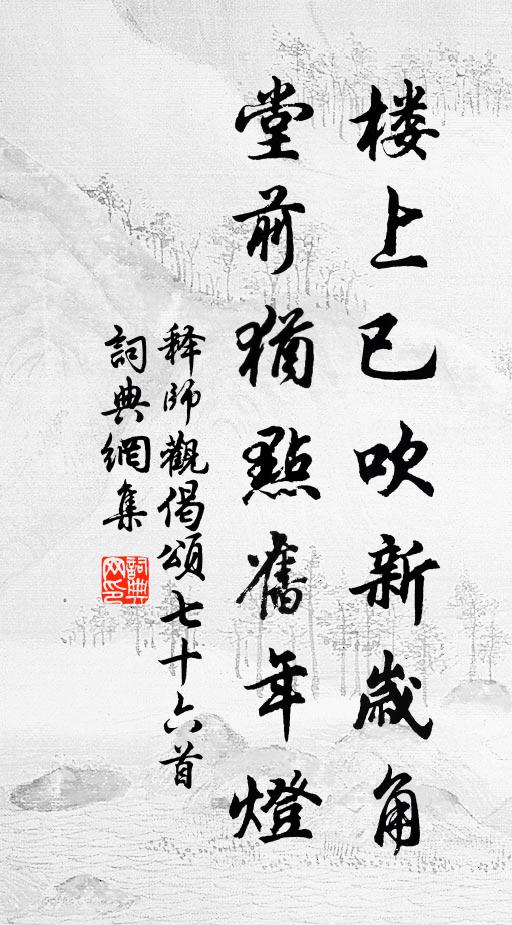 楼上已吹新歲角
堂前猶點舊年燈
释師觀偈頌七十六首
詞典網集
詞典网印